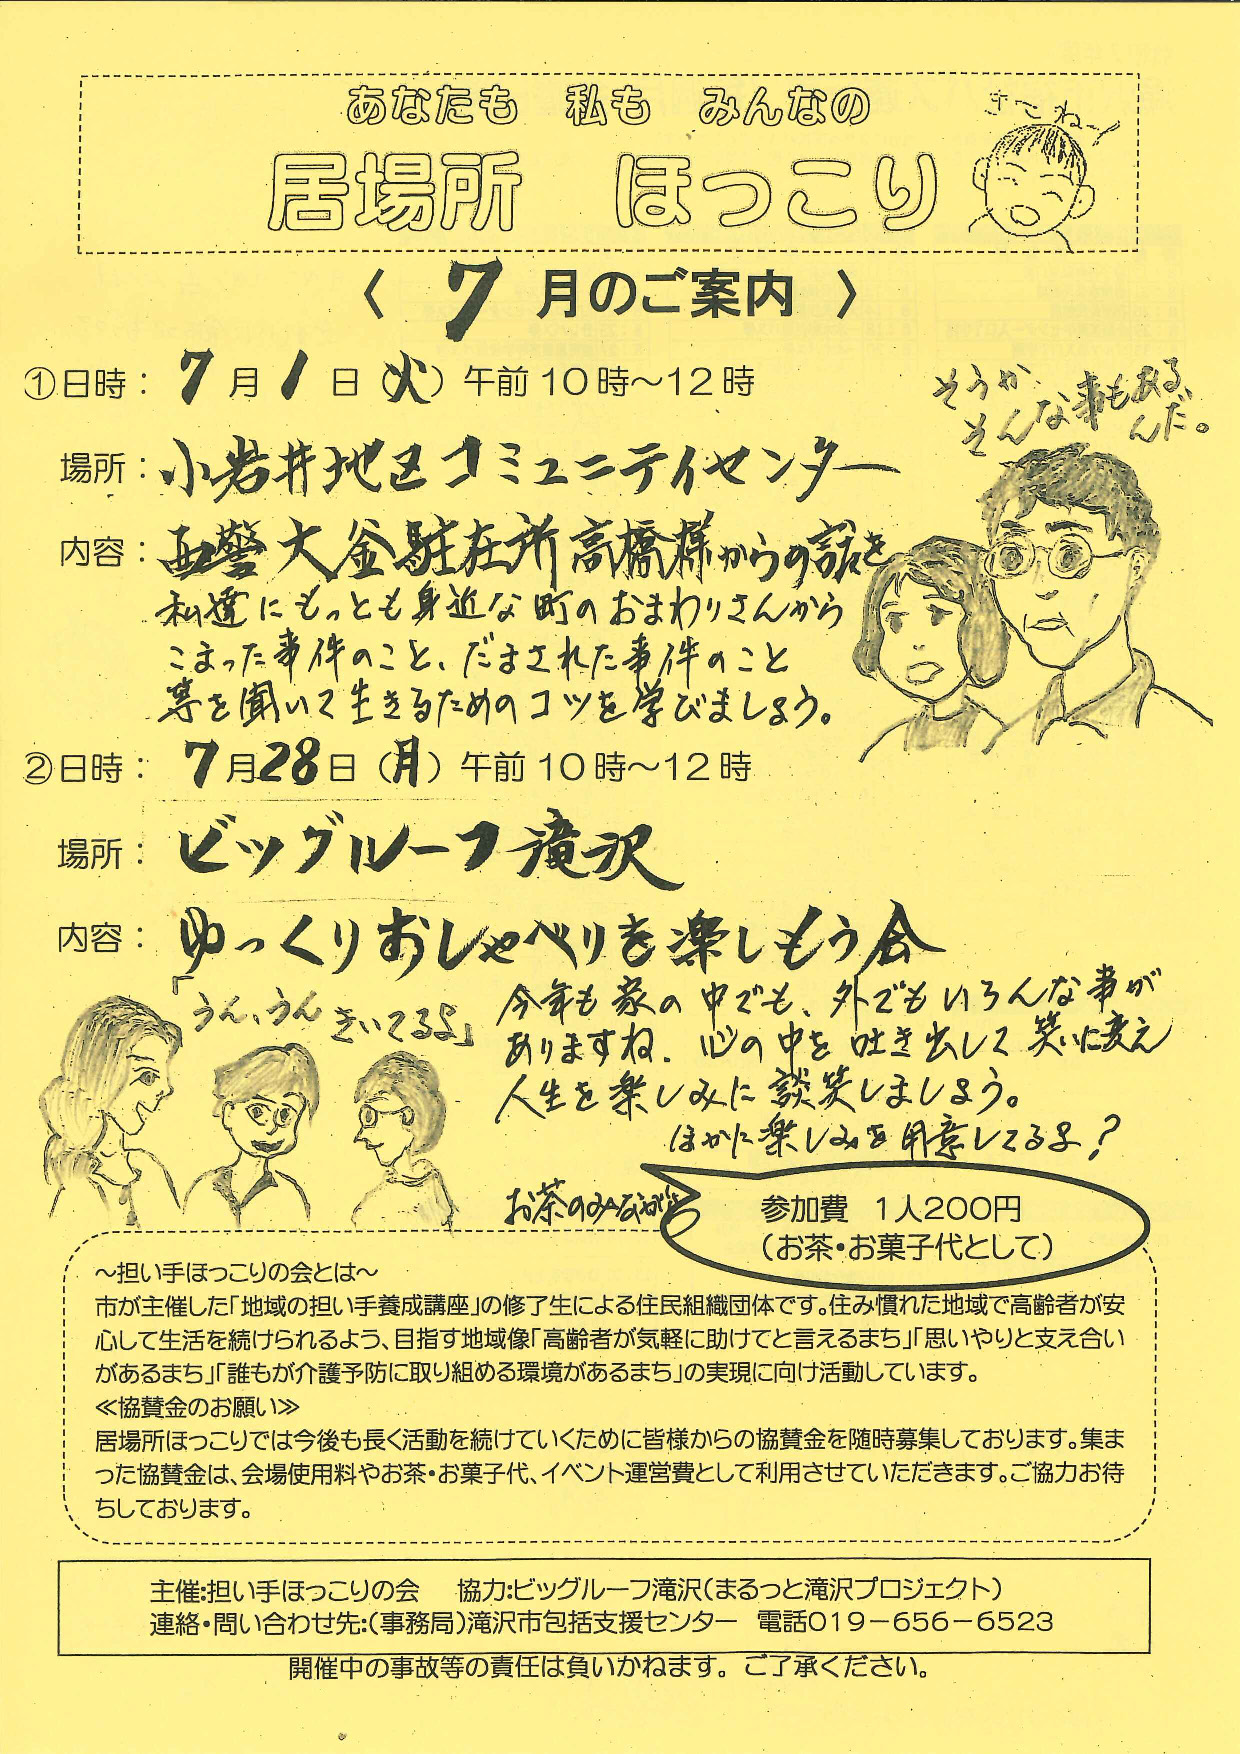 あなたも 私も みんなの
居場所 ほっこり
きてね～
〈 7月のご案内 〉
①日時： 7月1日（火）午前10時～12時
そうか、
そんな事もある
んだ。
場所：小岩井地区コミュニティセンター
内容：西警大釜駐在所高橋様からの話を
私達にもっとも身近な町のおまわりさんから
こまった事件のこと、だまされた事件のこと
等を聞いて生きるためのコツを学びましょう。
②日時： 7月28日（月）午前10時～12時
場所： ビッグルーフ滝沢
内容： ゆっくりおしゃべりを楽しもう会
「うん、うん
きいてるよ」
今年も家の中でも、外でもいろんな事が
ありますね。心の中を吐き出して笑いに変え
人生を楽しみに談笑しましょう。
ほかに楽しみを用意してるよ？
お茶のみながら
参加費 1人200円
（お茶・お菓子代として）
～担い手ほっこりの会とは～
市が主催した「地域の担い手養成講座」の修了生による住民組織団体です。住み慣れた地域で高齢者が安
心して生活を続けられるよう、目指す地域像「高齢者が気軽に助けてと言えるまち」「思いやりと支え合い
があるまち」「誰もが介護予防に取り組める環境があるまち」の実現に向け活動しています。
≪協賛金のお願い≫
居場所ほっこりでは今後も長く活動を続けていくために皆様からの協賛金を随時募集しております。集ま
った協賛金は、会場使用料やお茶・お菓子代、イベント運営費として利用させていただきます。ご協力お待
ちしております。
主催:担い手ほっこりの会 協力:ビッグルーフ滝沢（まるっと滝沢プロジェクト）
連絡・問い合わせ先:（事務局）滝沢市包括支援センター 電話019－656－6523
開催中の事故等の責任は負いかねます。ご了承ください。